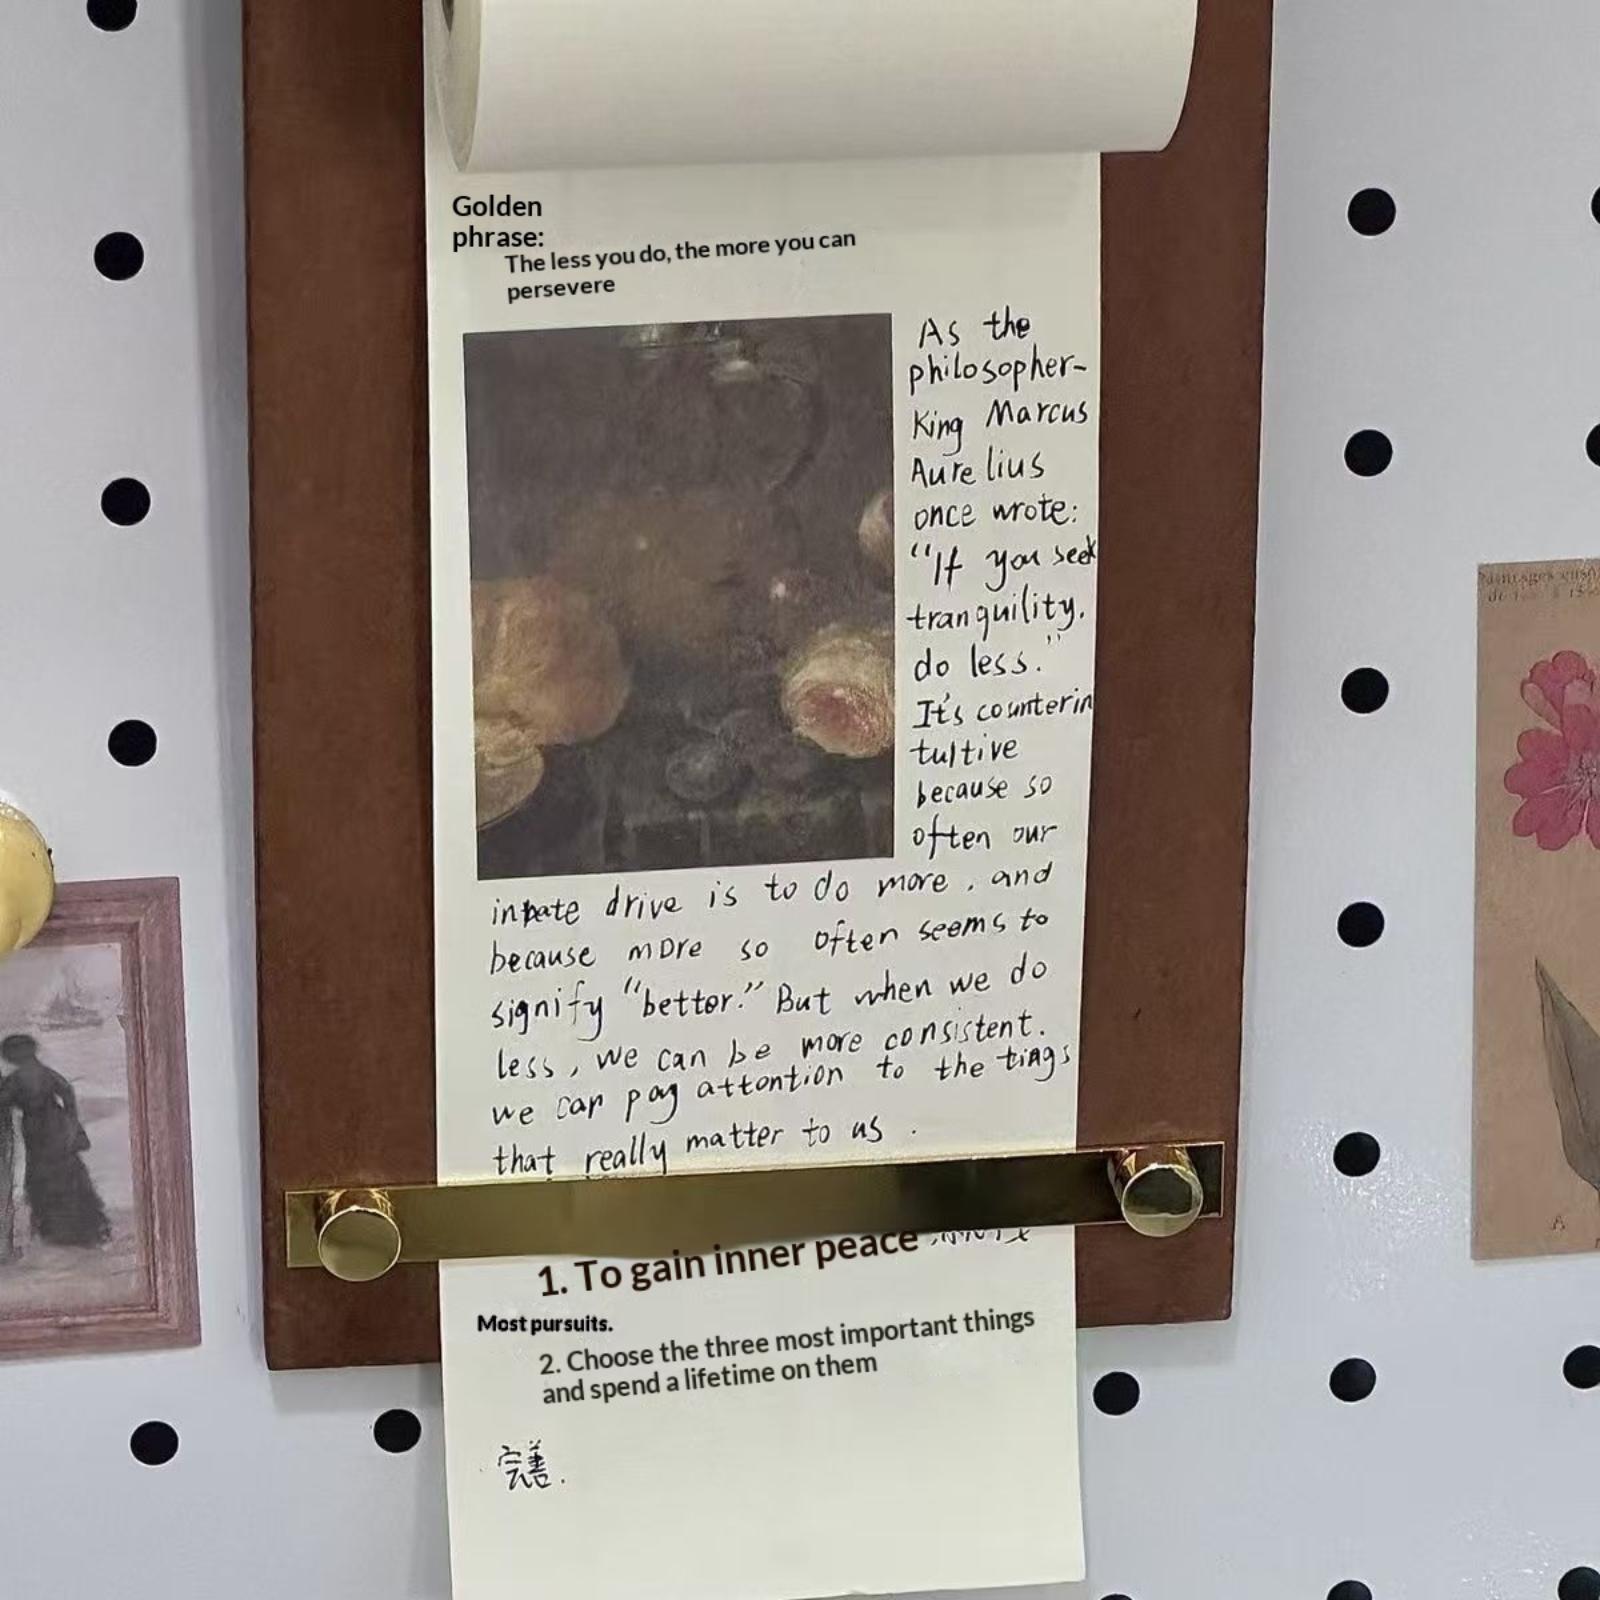 Golden
phrase:
The less you do, the more you can
persevere
As the
philosopher-
King Marcus
Aurelius
once wrote:
"If you seek
tranquility.
do less."
It's counterin
tuitive
because so
often our
innate drive is to do more, and
because more so often seems to
signify "better." But when we do
less, we can be more consistent.
we can pay attontion to the tings
that really matter to us.
1. To gain inner peace
Most pursuits.
2. Choose the three most important things
and spend a lifetime on them
完善.